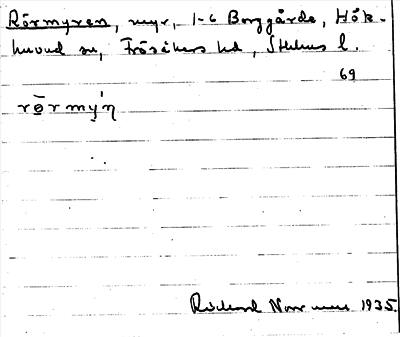 Rörmyren, myr, 1-6 Borggårde, Hök-
huvud sn, Frösåkers hd, Sthlms l.
69
rö̀rmýn
Rickard Norrman 1935.